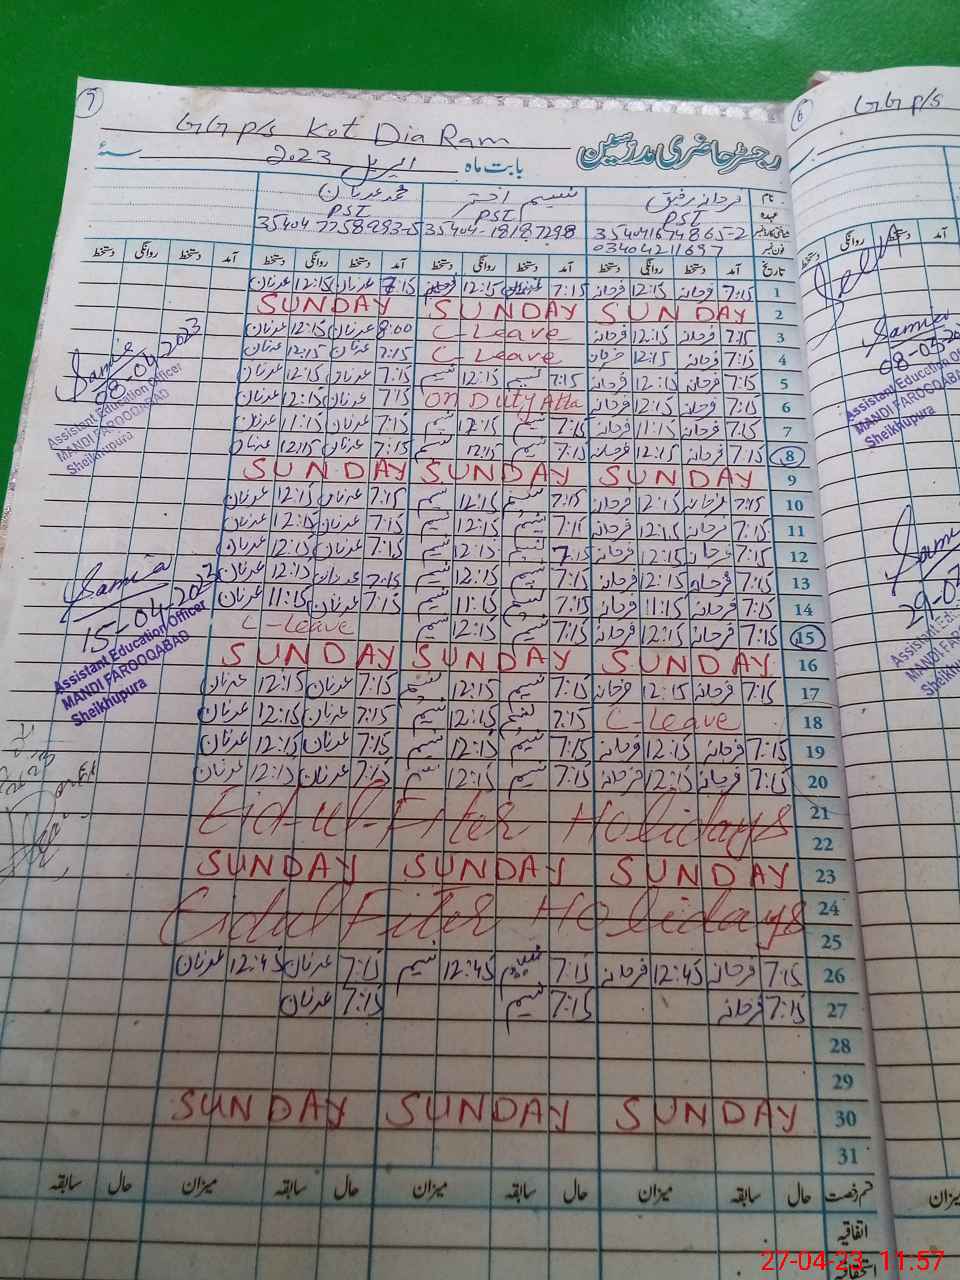 7
GGP/S Kot Dia Ram
رجسٹر حاضری مدرسین
بابت ماہ اپریل 2023 سنہ
نام فرحانہ رفیق نسیم اختر محمد عدنان
عہدہ PST PST PST
35404-18187298
نمبر 03404211697
تاریخ آمد دستخط روانگی دستخط آمد دستخط روانگی دستخط آمد دستخط روانگی دستخط آمد دستخط روانگی دستخط
1 7:15 فرحانہ 12:15 فرحانہ 7:15 12:15 7:15 عدنان 12:15 عدنان
2 SUNDAY SUNDAY SUNDAY
3 7:15 فرحانہ 12:15 فرحانہ C-Leave 8:00 عدنان 12:15 عدنان
4 7:15 فرحانہ 12:15 فرحانہ C-Leave 7:15 عدنان 12:15 عدنان
5 7:15 فرحانہ 12:15 فرحانہ 7:15 نسیم 12:15 نسیم 7:15 عدنان 12:15 عدنان
6 7:15 فرحانہ 12:15 فرحانہ On Duty 7:15 عدنان 12:15 عدنان
7 7:15 فرحانہ 11:15 فرحانہ 7:15 نسیم 12:15 نسیم 7:15 عدنان 11:15 عدنان
8 7:15 فرحانہ 12:15 فرحانہ 7:15 نسیم 12:15 نسیم 7:15 عدنان 12:15 عدنان
9 SUNDAY SUNDAY SUNDAY
10 7:15 فرحانہ 12:15 فرحانہ 7:15 نسیم 12:15 نسیم 7:15 عدنان 12:15 عدنان
11 7:15 فرحانہ 12:15 فرحانہ 7:15 نسیم 12:15 نسیم 7:15 عدنان 12:15 عدنان
12 7:15 فرحانہ 12:15 فرحانہ 7:15 نسیم 12:15 نسیم 7:15 عدنان 12:15 عدنان
13 7:15 فرحانہ 12:15 فرحانہ 7:15 نسیم 12:15 نسیم 7:15 عدنان 12:15 عدنان
14 7:15 فرحانہ 11:15 فرحانہ 7:15 نسیم 11:15 نسیم 7:15 عدنان 11:15 عدنان
15 7:15 فرحانہ 12:15 فرحانہ 7:15 نسیم 12:15 نسیم C-Leave
16 SUNDAY SUNDAY SUNDAY
17 7:15 فرحانہ 12:15 فرحانہ 7:15 نسیم 12:15 نسیم 7:15 عدنان 12:15 عدنان
18 C-Leave 7:15 نسیم 12:15 نسیم 7:15 عدنان 12:15 عدنان
19 7:15 فرحانہ 12:15 فرحانہ 7:15 نسیم 12:15 نسیم 7:15 عدنان 12:15 عدنان
20 7:15 فرحانہ 12:15 فرحانہ 7:15 نسیم 12:15 نسیم 7:15 عدنان 12:15 عدنان
21 Eid-ul-Fiter Holidays
22
23 SUNDAY SUNDAY SUNDAY
24 Eidul Fiter Holidays
25
26 7:15 فرحانہ 12:45 فرحانہ 7:15 نسیم 12:45 نسیم 7:15 عدنان 12:45 عدنان
27 7:15 فرحانہ 7:15 نسیم 7:15 عدنان
28
29
30 SUNDAY SUNDAY SUNDAY
31
قسم رخصت حال سابقہ میزان حال سابقہ میزان حال سابقہ میزان حال سابقہ
اتفاقیہ
استحقاقیہ
Samia
08-04-2023
Assistant Education Officer
MANDI FAROOQABAD
Sheikhupura
Samia
15-04-2023
Assistant Education Officer
MANDI FAROOQABAD
Sheikhupura
6
GGP/S
آمد دستخط روانگی
Samia
Assistant Education
MANDI FAROOQABAD
Sheikhupura
میزان
27-04-23 11:57